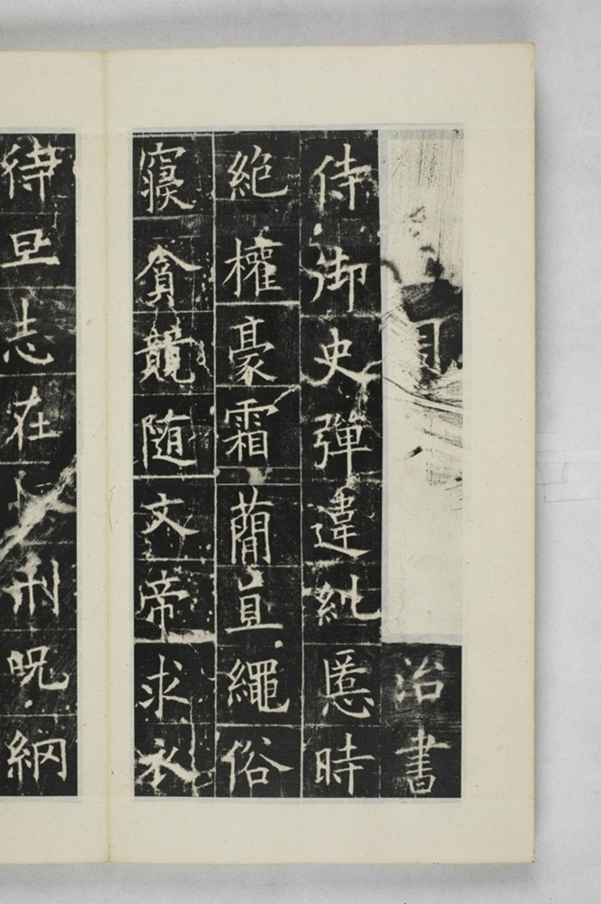 治書
侍御史彈違糺慝時
絶權豪霜蕳直繩俗
寢貪競随文帝求衣
待旦志在刑呪網